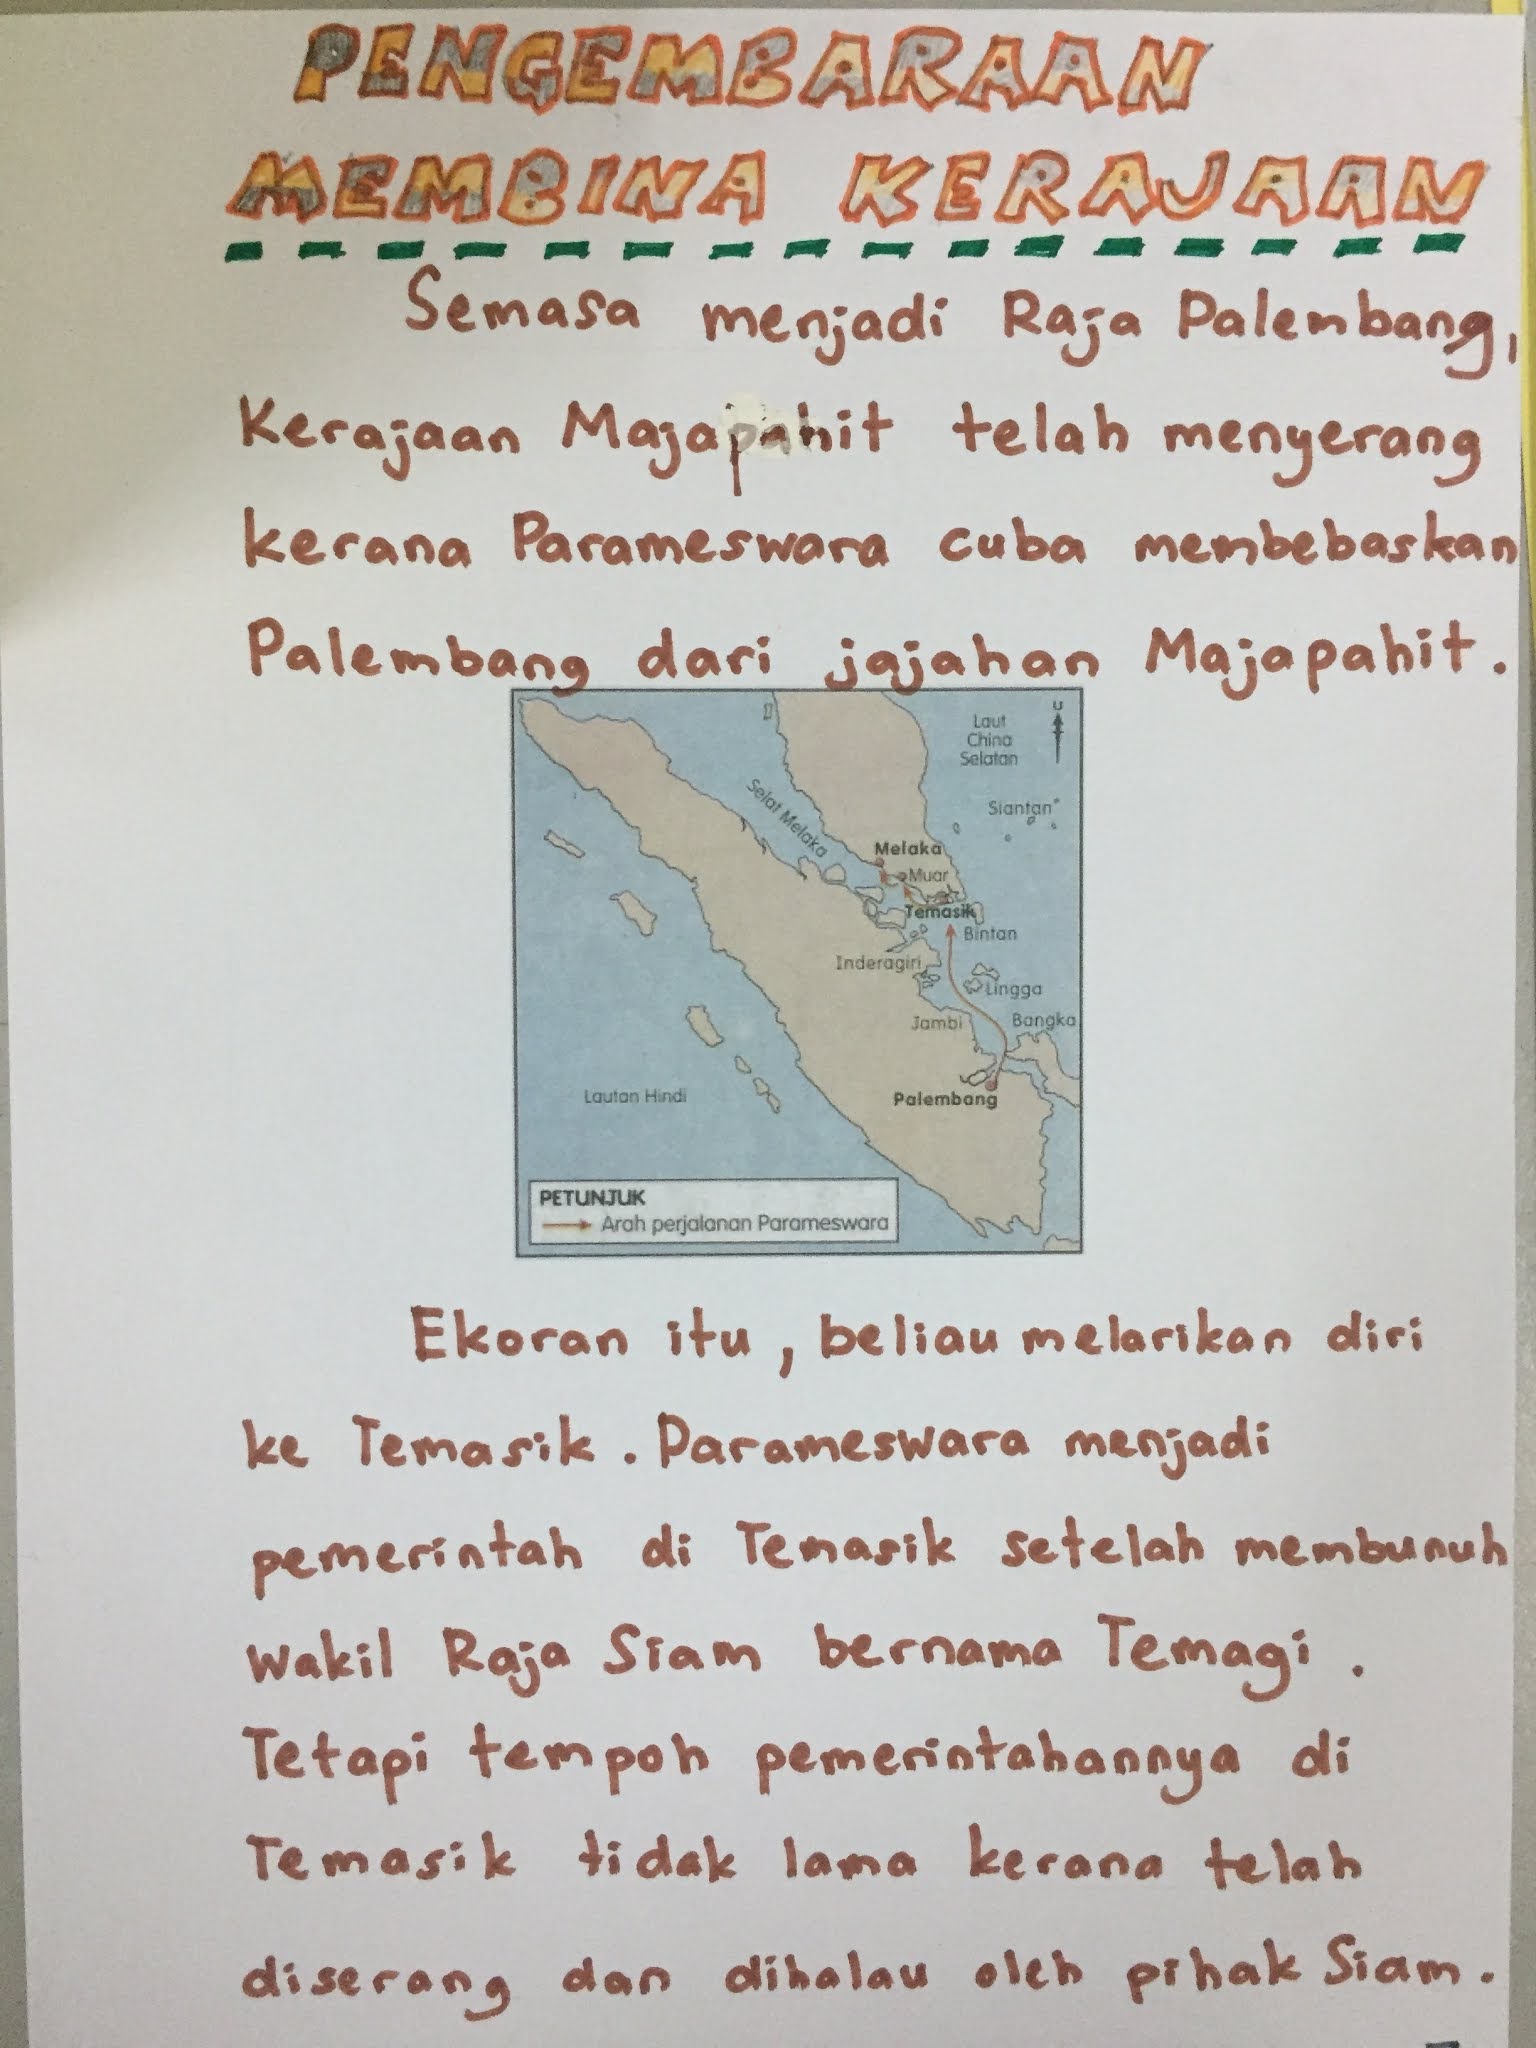 PENGEMBARAAN
MEMBINA KERAJAAN
Semasa menjadi Raja Palembang,
Kerajaan Majapahit telah menyerang
kerana Parameswara cuba membebaskan
Palembang dari jajahan Majapahit.
U
Laut
China
Selatan
Siantan
Selat Melaka
Melaka
Muar
Temasik
Bintan
Inderagiri
Lingga
Jambi
Bangka
Lautan Hindi
Palembang
PETUNJUK
Arah perjalanan Parameswara
Ekoran itu, beliau melarikan diri
ke Temasik. Parameswara menjadi
pemerintah di Temasik setelah membunuh
Wakil Raja Siam bernama Temagi.
Tetapi tempoh pemerintahannya di
Temasik tidak lama kerana telah
diserang dan dihalau oleh pihak Siam.